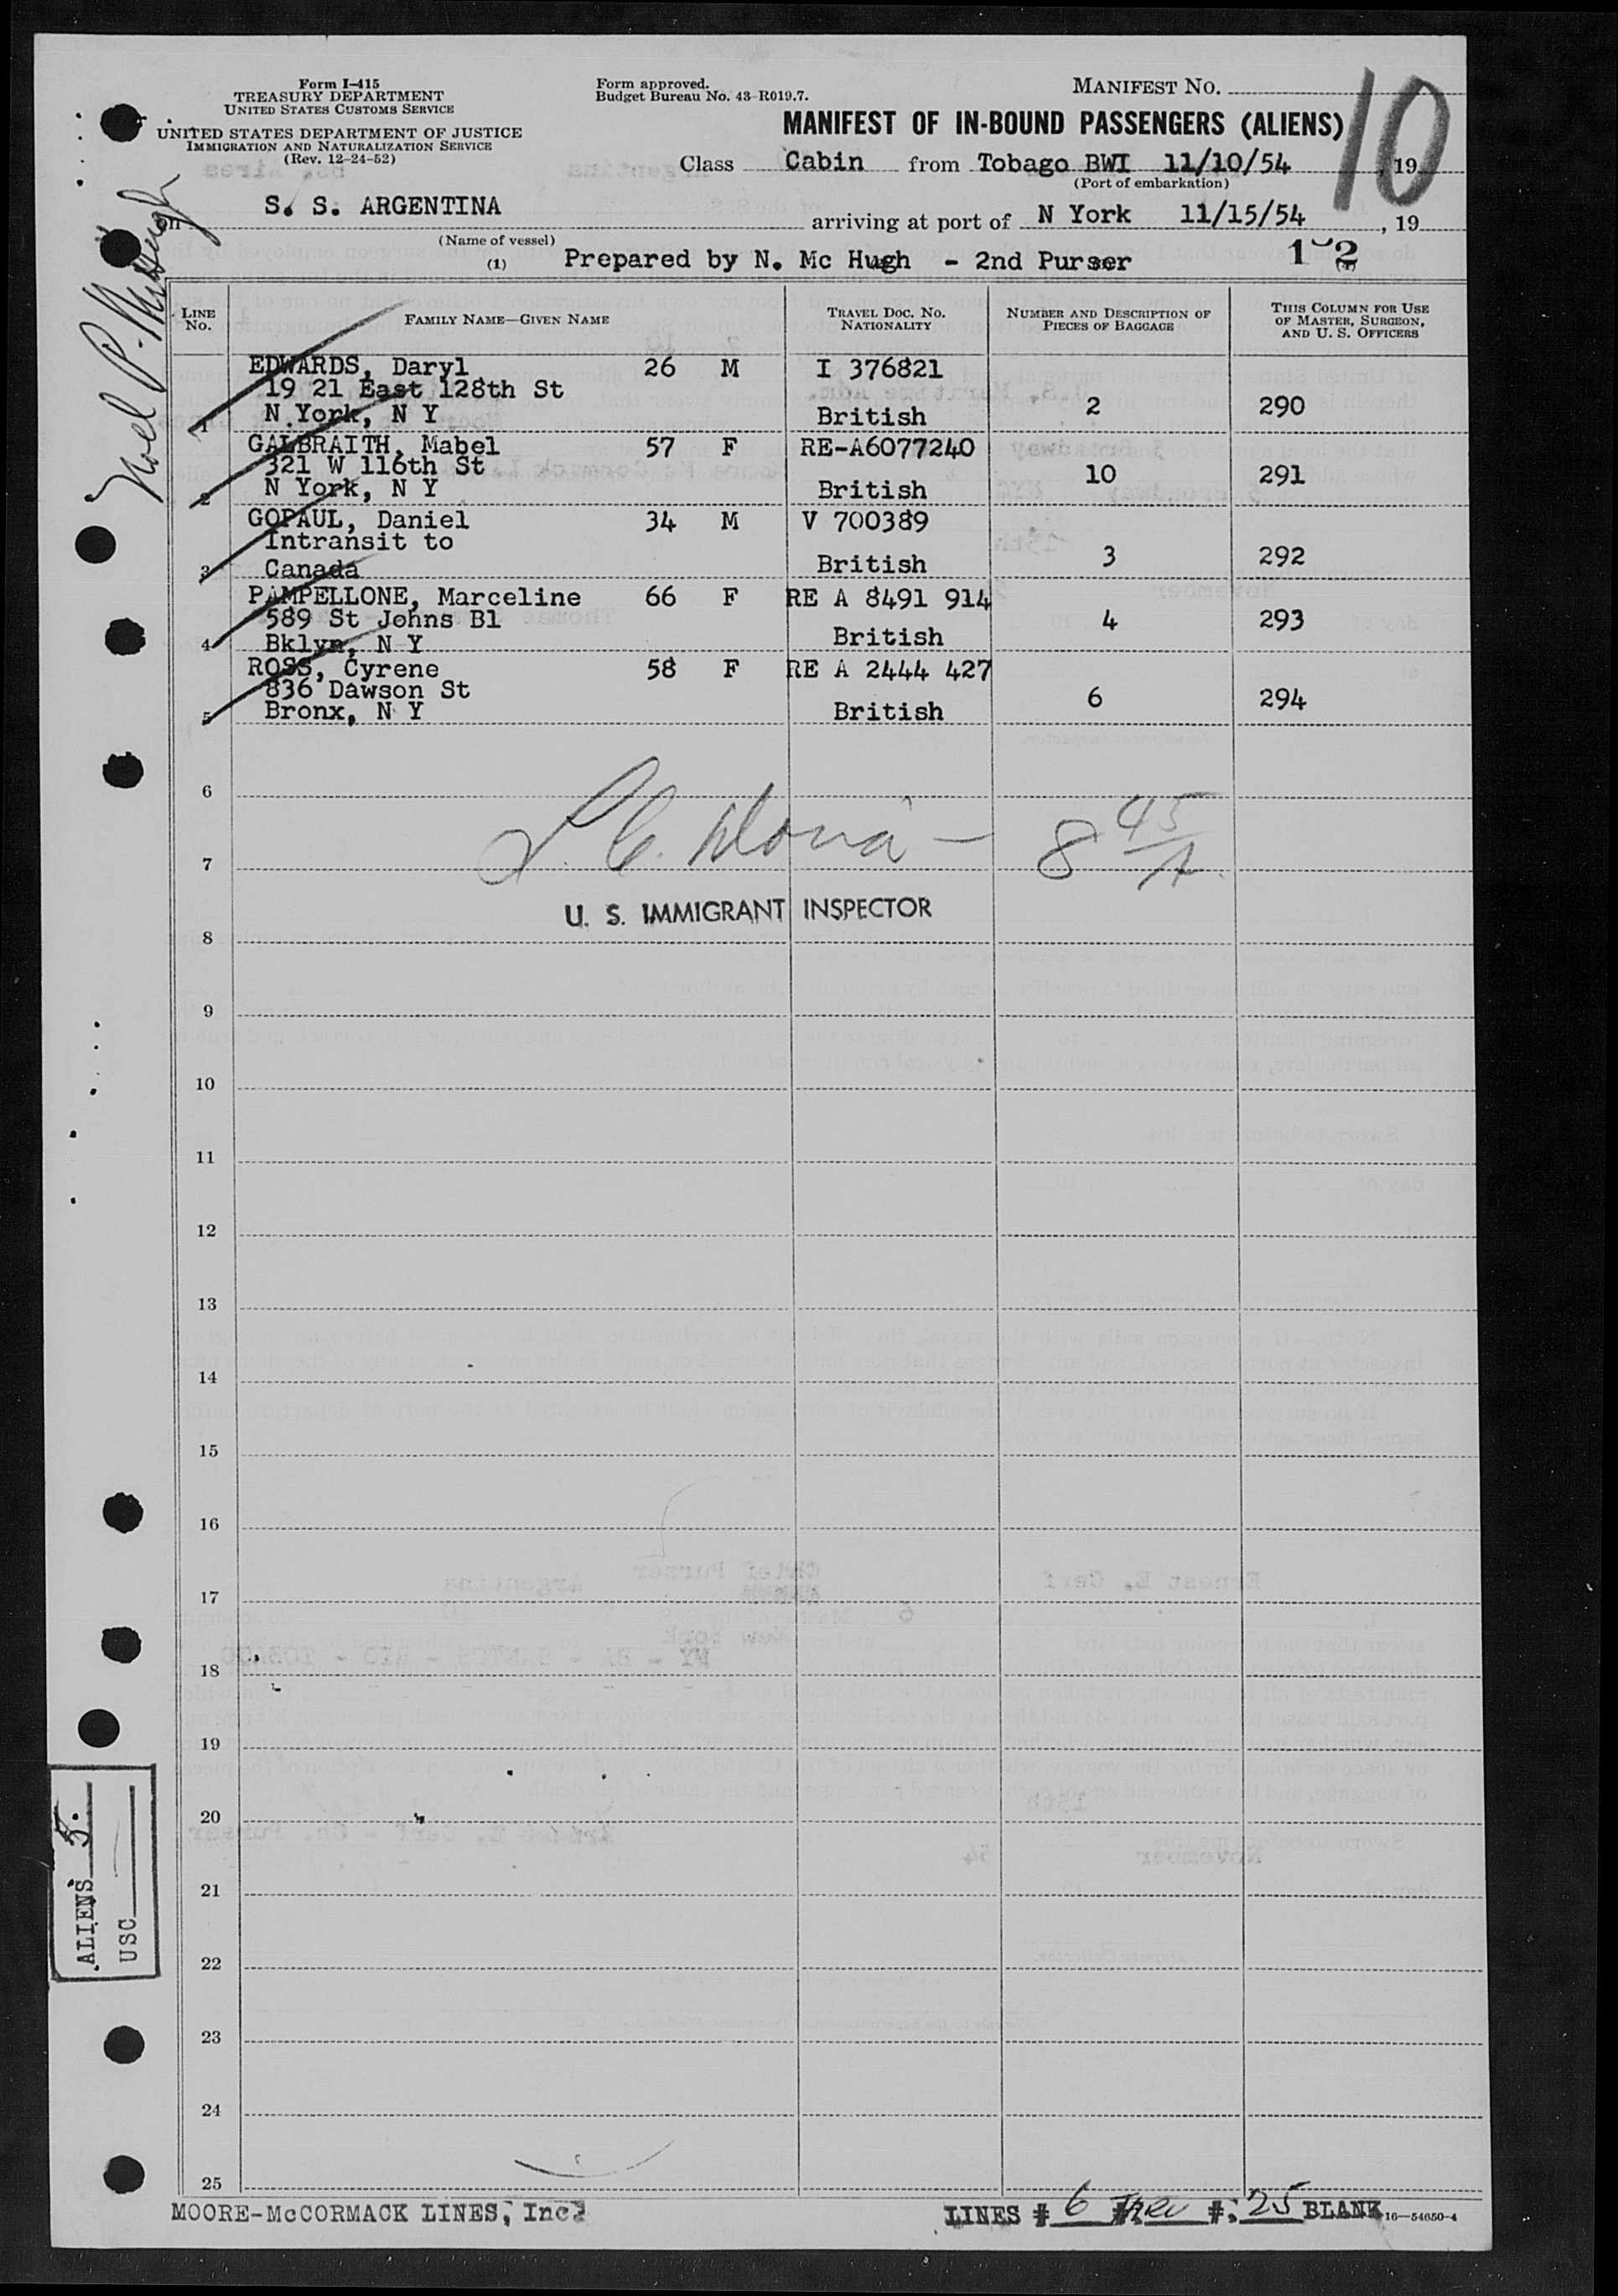 Form I-415
TREASURY DEPARTMENT
UNITED STATES CUSTOMS SERVICE
UNITED STATES DEPARTMENT OF JUSTICE
IMMIGRATION AND NATURALIZATION SERVICE
(Rev. 12-24-52)
Form approved.
Budget Bureau No. 43-R019.7.
MANIFEST NO.
10
MANIFEST OF IN-BOUND PASSENGERS (ALIENS)
Class Cabin from Tobago BWI 11/10/54, 19
(Port of embarkation)
on S. S. ARGENTINA arriving at port of N York 11/15/54, 19
(Name of vessel)
(1) Prepared by N. Mc Hugh - 2nd Purser 1 2
LINE No. FAMILY NAME—GIVEN NAME TRAVEL DOC. NO. NATIONALITY NUMBER AND DESCRIPTION OF PIECES OF BAGGAGE THIS COLUMN FOR USE OF MASTER, SURGEON, AND U. S. OFFICERS
EDWARDS, Daryl 26 M I 376821
19 21 East 128th St
1 N York, N Y British 2 290
GALBRAITH, Mabel 57 F RE-A6077240
321 W 116th St
2 N York, N Y British 10 291
GOPAUL, Daniel 34 M V 700389
Intransit to
3 Canada British 3 292
PAMPELLONE, Marceline 66 F RE A 8491 914
589 St Johns Bl
4 Bklyn, N Y British 4 293
ROSS, Cyrene 58 F RE A 2444 427
836 Dawson St
5 Bronx, N Y British 6 294
6
7 8 45/A
U. S. IMMIGRANT INSPECTOR
8
9
10
11
12
13
14
15
16
17
18
19
20
21
22
23
24
25
ALIENS 5.
USC
MOORE-McCORMACK LINES, Inc.
LINES # 6 #: 25 BLANK 16—54650-4